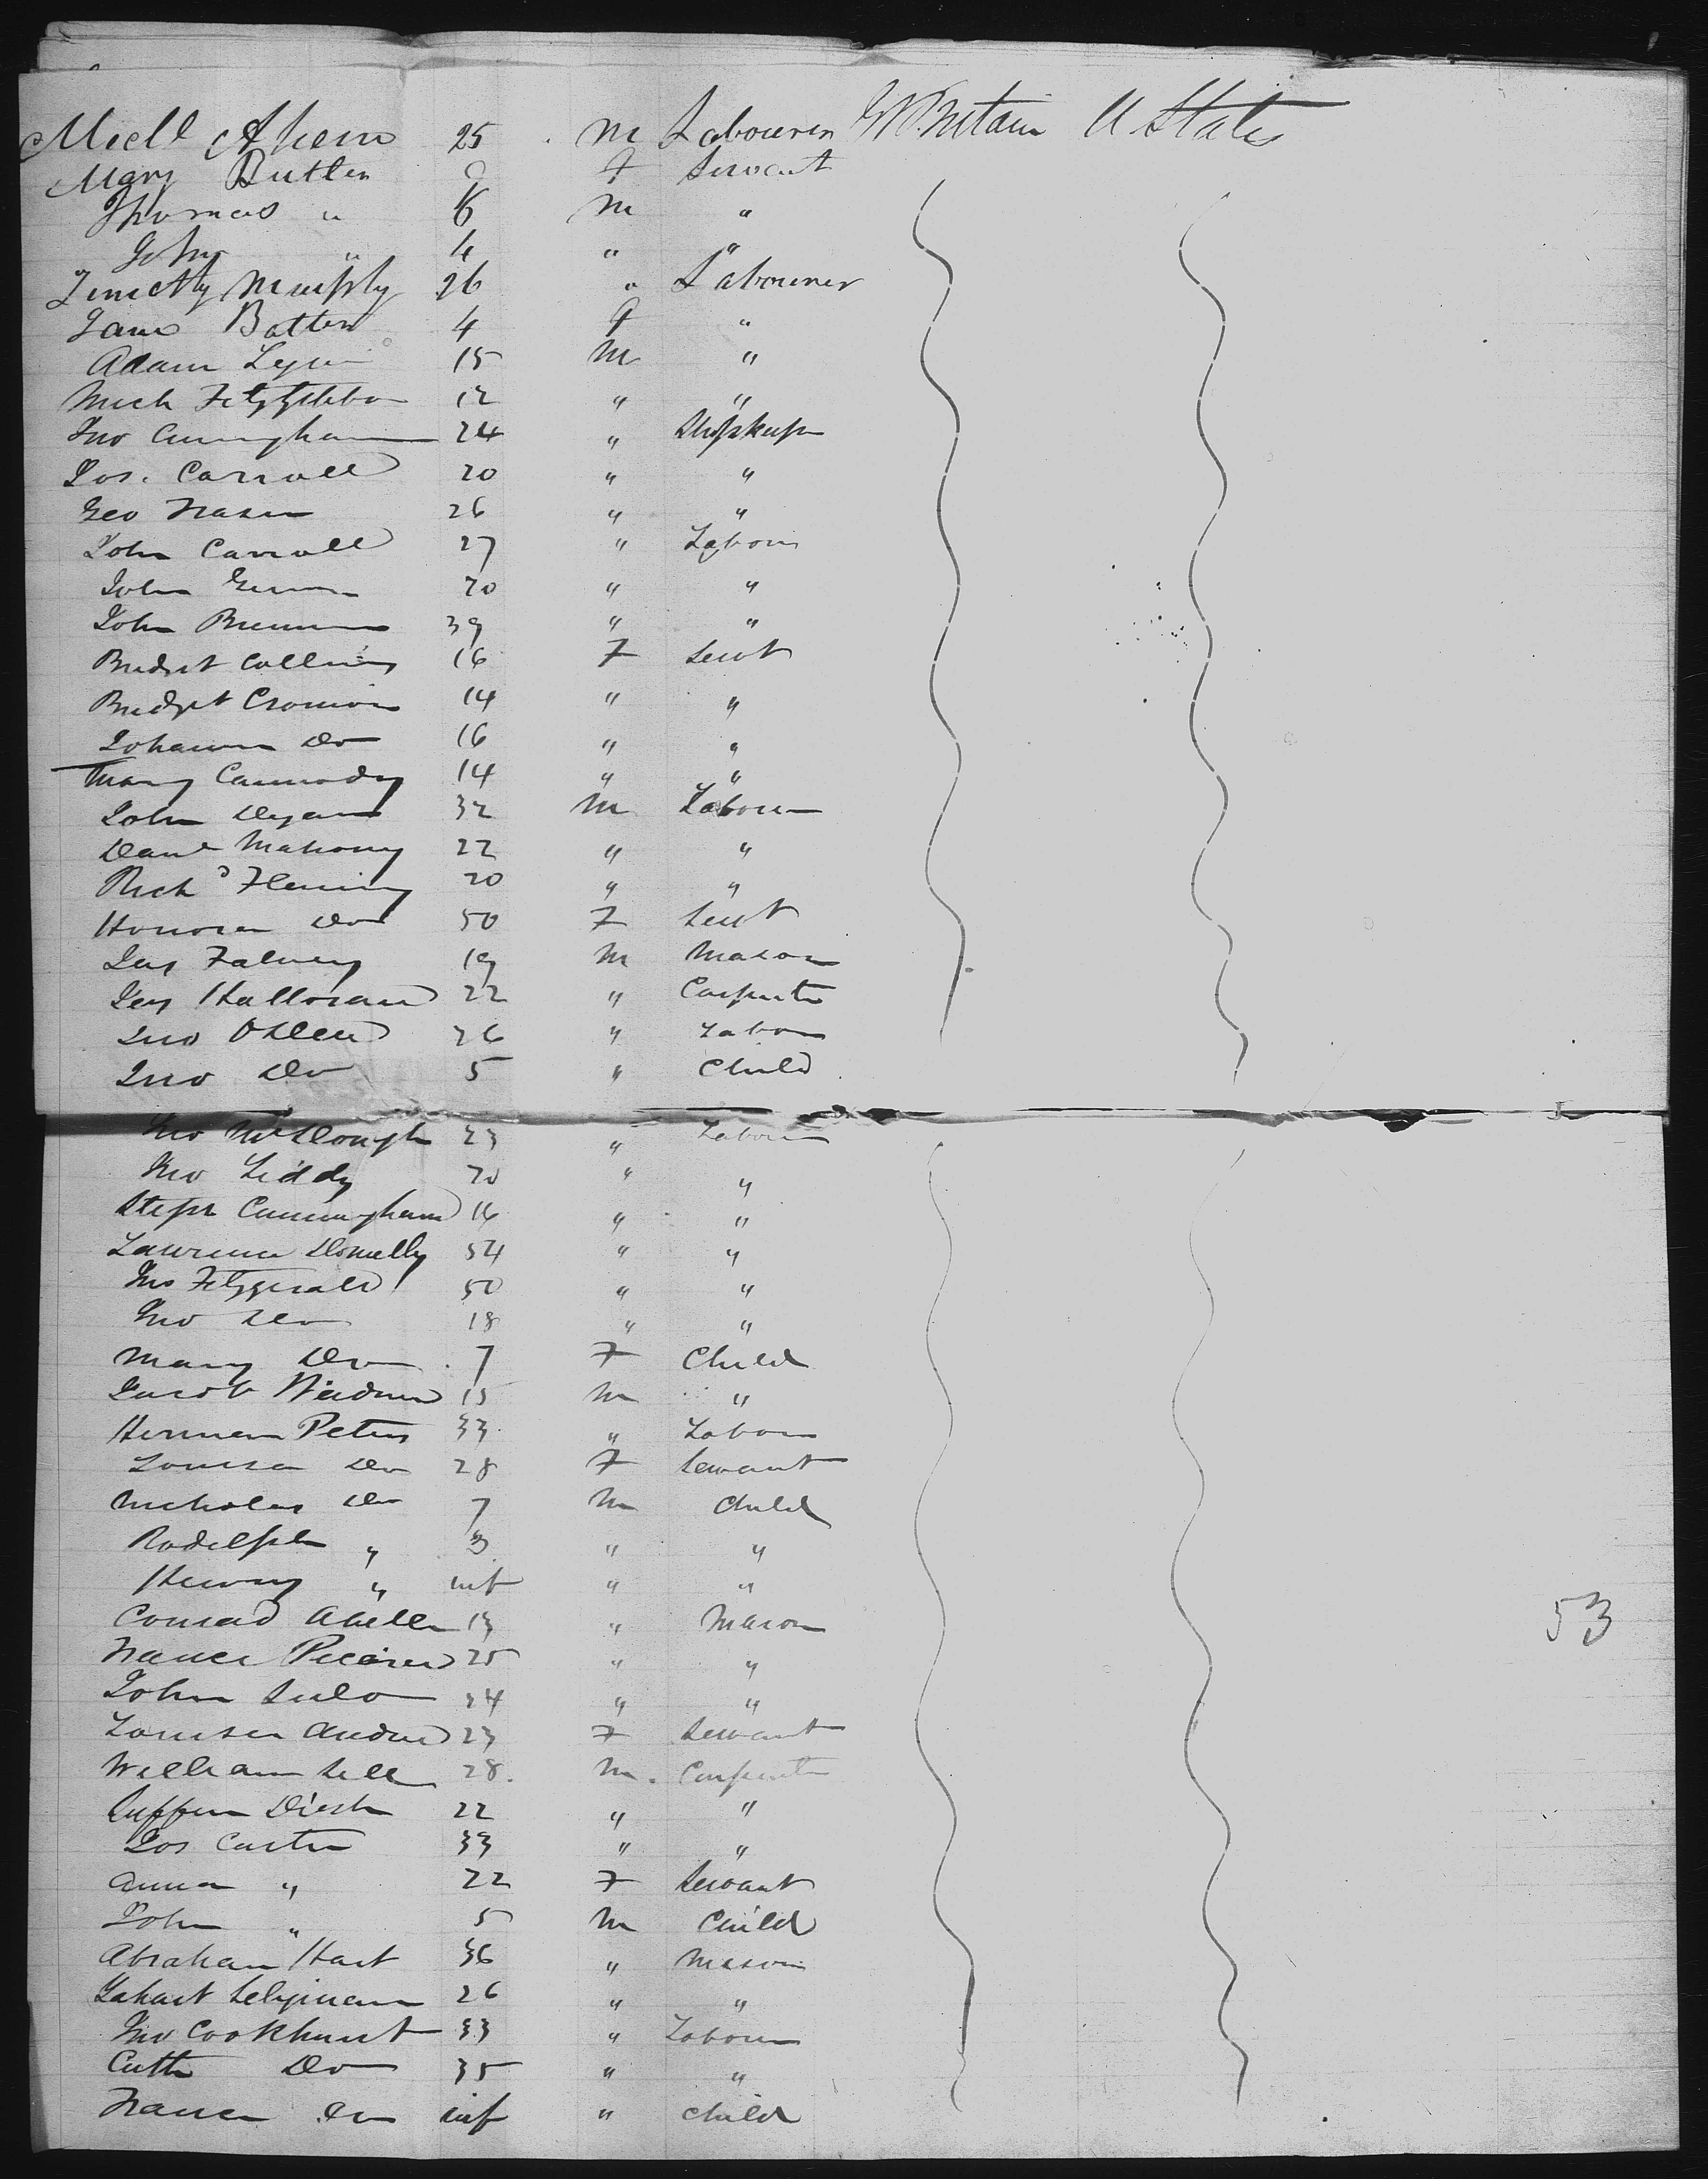 Michl Ahern 25 m Labourer Gt Britain U States
Mary Butler f Servant
Thomas " 6 m "
John " 4 " "
Timothy Murphy 26 " Labourer
Jane Batten 4 f "
Adam 15 m "
Mich 12 " "
Jno Cuningham 24 " Shopkeepr
Jos. Carroll 20 " "
Geo Fraser 26 " "
John Carroll 27 " Labour
John 20 " "
John Brennan 39 " "
Bridget Collins 16 F Sevt
Bridget Cronion 14 " "
Johanna Do 16 " "
Mary Carmody 14 " "
John 32 m Labour
Danl Mahony 22 " "
Richd Fleming 20 " "
Honora Do 50 F Sevt
Jas Falvey 19 m Mason
Jas Halloran 22 " Carpenter
Jno 26 " Labour
Jno Do 5 " Child
Jno 23 " Labour
Jno Liddy 20 " "
Steph Cunningham 16 " "
Lawrence Donnelly 54 " "
Jno Fitzgerald 50 " "
Jno Do 18 " "
Mary Do 7 F Child
Jacob 15 m "
Herman Peters 33 " Labour
Louisa Do 28 F Servant
Nicholas Do 7 m Child
Rodolph " 3 " "
Henry " inf " "
Conrad 13 " Mason
25 " "
John 24 " "
Louisa 23 F Servant
William 28. m. Carpenter
22 " "
Jos Carter 33 " "
Anna " 22 F Servant
John " 5 m Child
Abraham Hart 36 " Mason
26 " "
Jno Cookhurst 33 " Labour
Cath Do 35 " "
Do inf " child
53